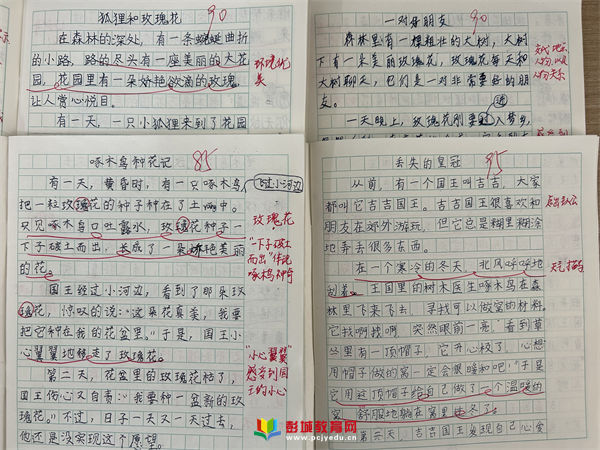 狐狸和玫瑰花
90
在森林的深处，有一条蜿蜒曲折
的小路，路的尽头有一座美丽的大花
园，花园里有一朵娇艳欲滴的玫瑰，
让人赏心悦目。
有一天，一只小狐狸来到了花园
环境优
美
一对好朋友
90
森林里有一棵粗壮的大树，大树
下有一朵美丽玫瑰花，玫瑰花每天和
大树聊天，它们是一对非常要好的朋
友。
一天晚上，玫瑰花刚要进入梦乡，
啄木鸟种花记
85
有一天，黄昏时，有一只啄木鸟飞过小河边
把一粒玫瑰花的种子种在了土中。
只见啄木鸟口吐露水，玫瑰花种子一
下子破土而出，长成了一朵娇艳美丽
的花。
国王经过小河边，看到了那朵玫
瑰花，惊叹的说：“这朵花真美，我要
把它种在我的花盆里。”于是，国王小
心翼翼地移走了玫瑰花。
第二天，花盆里的玫瑰花枯了，
国王伤心又自责：“我要种一盆新的玫
瑰花。”不过，日子一天又一天过去，
他还是没实现这个愿望。
玫瑰花
“一下子破土
而出”体现
啄木鸟神奇
“小心翼翼”
感受到国
王的小心
丢失的皇冠
95
从前，有一个国王叫吉吉，大家
都叫它吉吉国王。吉吉国王很喜欢和
朋友在郊外游玩，但它总是糊里糊涂
地弄丢很多东西。
在一个寒冷的冬天，北风呼呼地
刮着。王国里的树木医生啄木鸟在森
林里飞来飞去，寻找可以做窝的材料。
它找啊找啊，突然眼前一亮，看到草
丛里有一顶帽子，它开心极了，心想
用帽子做的窝一定会很暖和吧！于是
它用这顶帽子给自己做了一个温暖的
窝，舒服地躺在窝里过冬了。
第二天，吉吉国王发现自己心爱
点出主人公
天气描写
彭城教育网
www.pcjyedu.cn